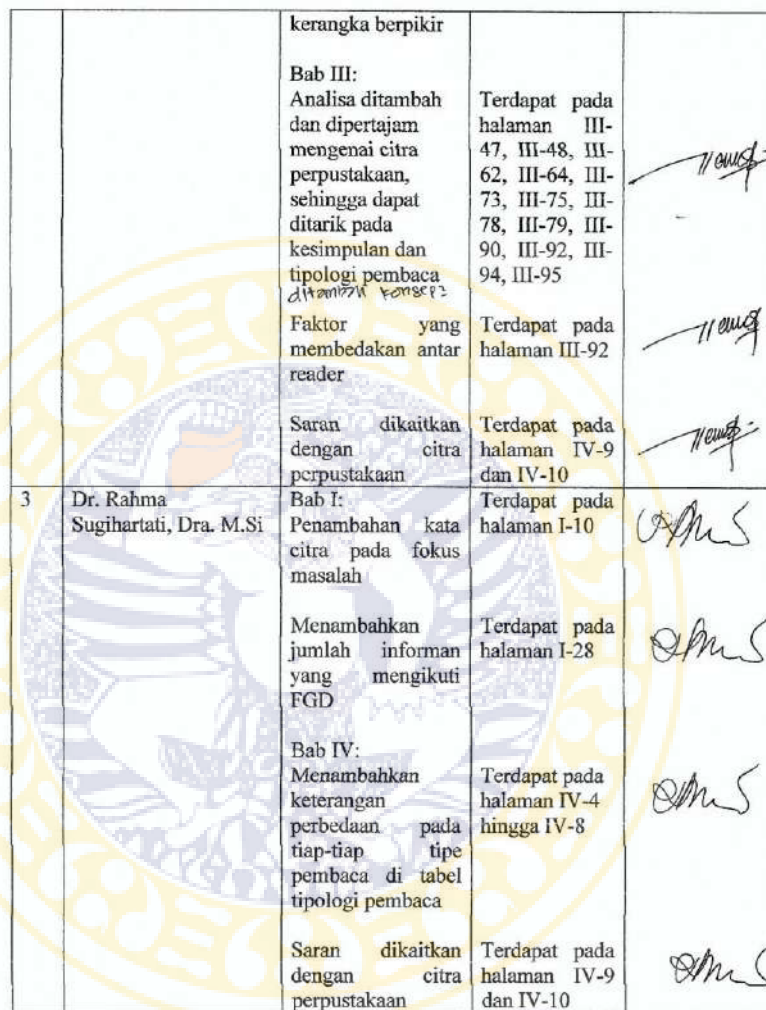 kerangka berpikir
Bab III:
Analisa ditambah
dan dipertajam
mengenai citra
perpustakaan,
sehingga dapat
ditarik pada
kesimpulan dan
tipologi pembaca
ditambah konsep2
Terdapat pada
halaman III-
47, III-48, III-
62, III-64, III-
73, III-75, III-
78, III-79, III-
90, III-92, III-
94, III-95
Faktor yang
membedakan antar
reader
Terdapat pada
halaman III-92
Saran dikaitkan
dengan citra
perpustakaan
Terdapat pada
halaman IV-9
dan IV-10
3
Dr. Rahma
Sugihartati, Dra. M.Si
Bab I:
Penambahan kata
citra pada fokus
masalah
Terdapat pada
halaman I-10
Menambahkan
jumlah informan
yang mengikuti
FGD
Terdapat pada
halaman I-28
Bab IV:
Menambahkan
keterangan
perbedaan pada
tiap-tiap tipe
pembaca di tabel
tipologi pembaca
Terdapat pada
halaman IV-4
hingga IV-8
Saran dikaitkan
dengan citra
perpustakaan
Terdapat pada
halaman IV-9
dan IV-10